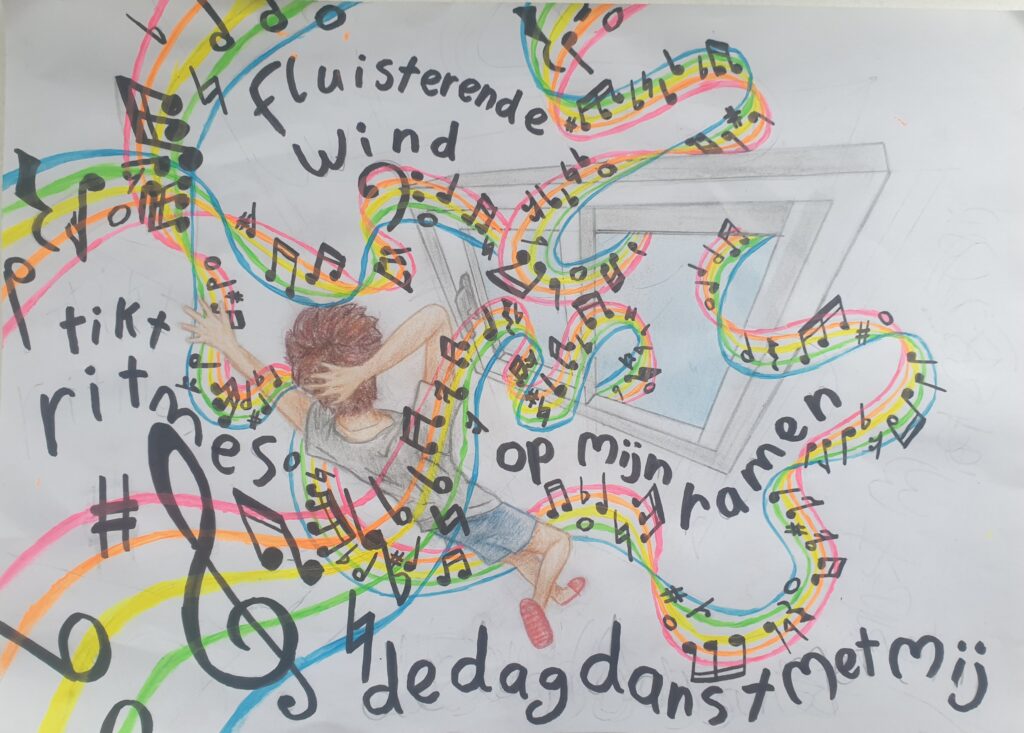 fluisterende
wind
tikt
ritmes
op mijn
ramen
de dag danst met mij